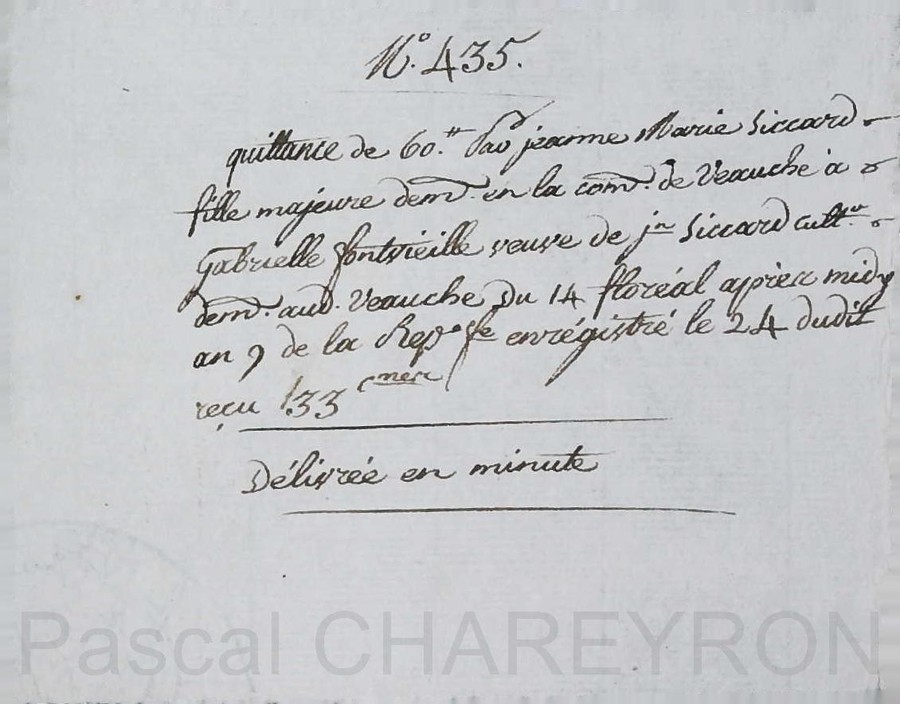 N.° 435.
quittance de 60.tt Par jeanne Marie Siccard
fille majeure demt. en la comne. de Veauche à
Gabrielle fontvieille veuve de jn Siccard cultur
demt. aud. Veauche Du 14 floréal après midy
an 9 de la Repe. fse enrégistré le 24 dudit
reçu 133 cmes
Délivrée en minute
Pascal CHAREYRON